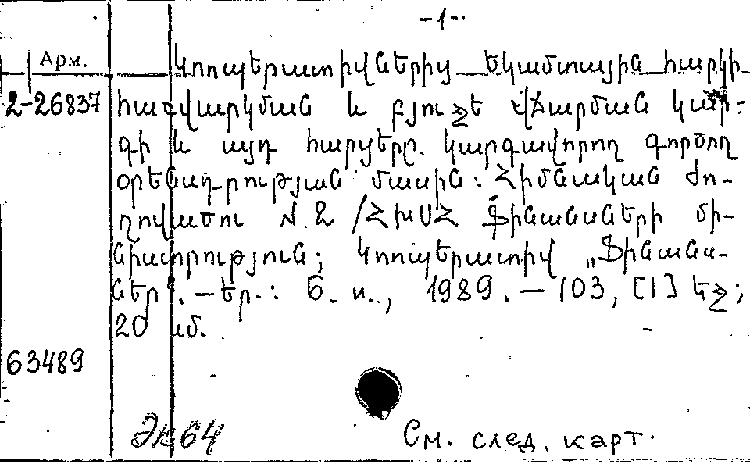 -1-
Арм.
Կոոպերատիվներից եկամտային հարկի
2-26837 հաշվարկման և բյուջե վճարման կար-
գի և այդ հարցերը կարգավորող գործող
օրենսդրության մասին: Հիմնական ժո-
ղովածու N.2 /ՀԽՍՀ Ֆինանսների մի-
նիստրություն; Կոոպերատիվ „Ֆինանս-
ներ“. – Եր.: Б. и., 1989. – 103, [1] եջ;
20 սմ.
63489
Эк64 См. след. карт.